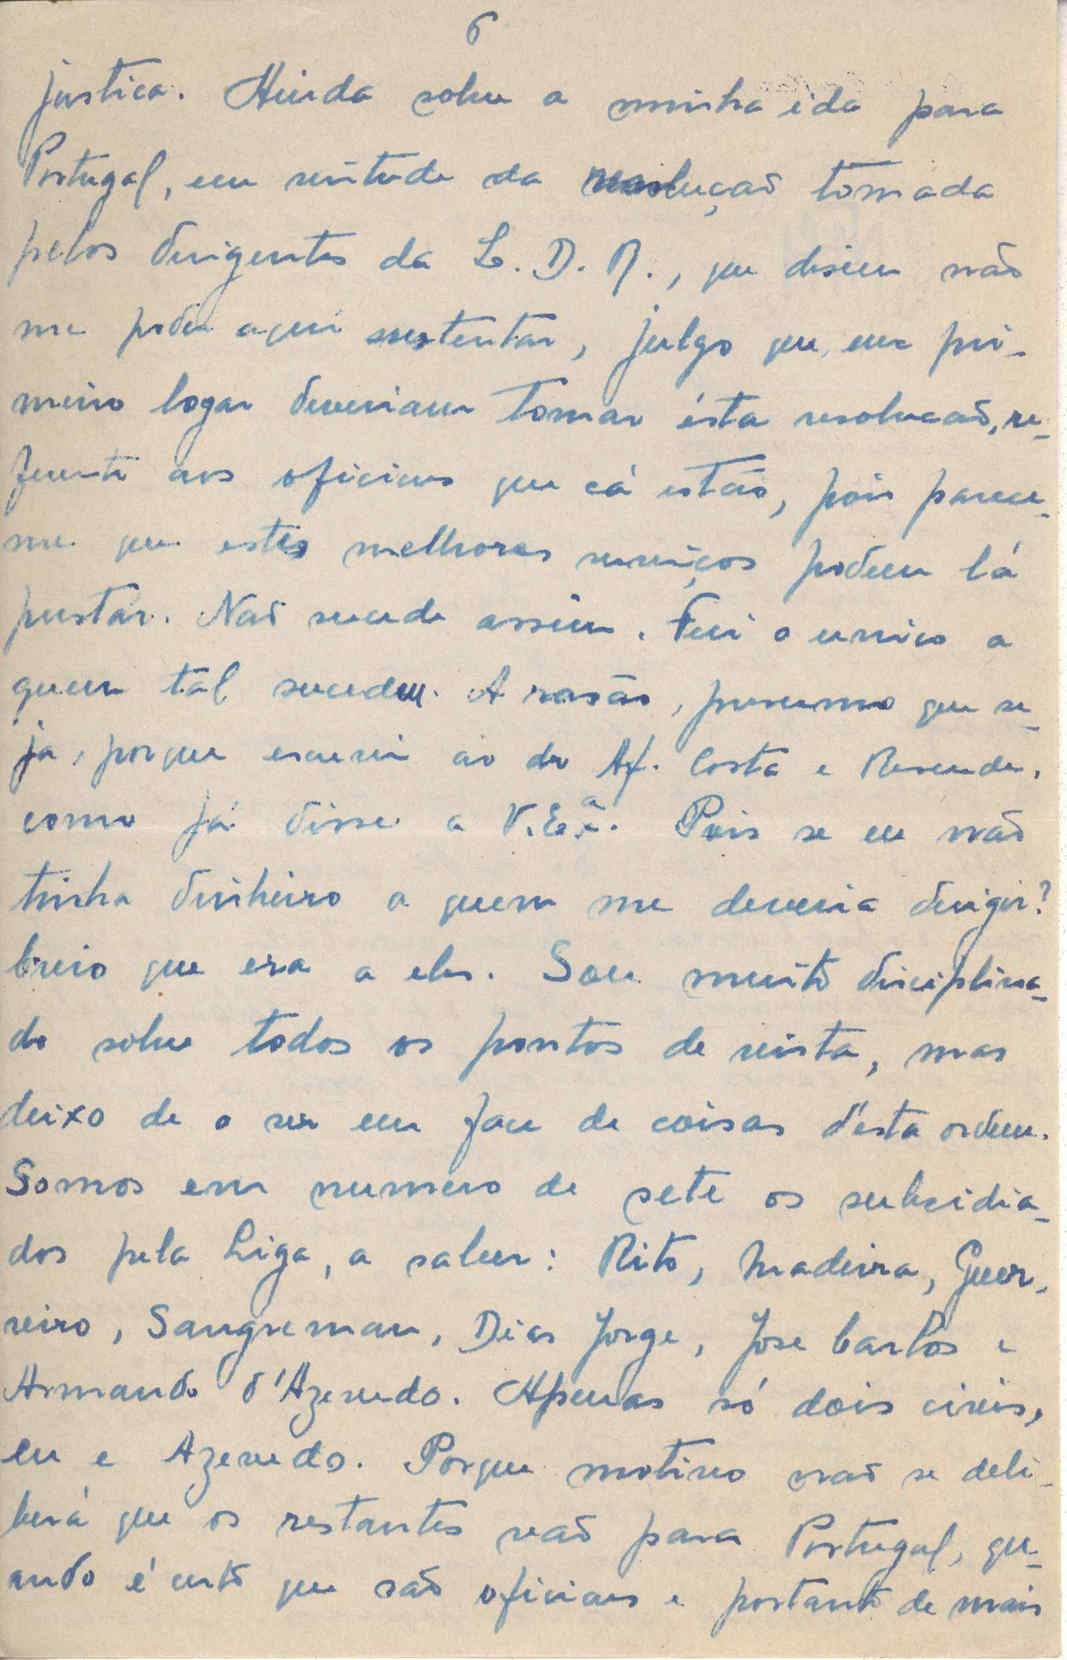 6
justica. Ainda sobre a minha ida para
Portugal, em virtude da resolução tomada
pelos dirigentes da L. D. R., que disem não
me poder aqui sustentar, julgo que, em pri-
meiro logar deveriam tomar ésta resolucaõ, re-
ferente aos oficiaes que cá estão, pois parece-
me que estes melhores serviços podem lá
prestar. Naõ sucede assim. Fui o unico a
quem tal sucedeu. A rasão, presumo que se-
ja, porque escrevi ao dr Af. Costa e Resende,
como já disse a V. Ex.ª. Pois se eu naõ
tinha dinheiro a quem me deveria dirigir?
Creio que era a eles. Sou muito disciplina-
do sobre todos os pontos de vista, mas
deixo de o ser em face de coisas d'ésta ordem.
Somos em numero de sete os subsidia-
dos pela Liga, a saber: Rito, Madeira, Guer-
reiro, Sangreman, Dias Jorge, Jose Carlos e
Armando d'Azevedo. Apenas só dois civis,
eu e Azevedo. Porque motivo naõ se deli-
berá que os restantes vaõ para Portugal, qu-
ando é certo que saõ oficiaes e portanto de mais